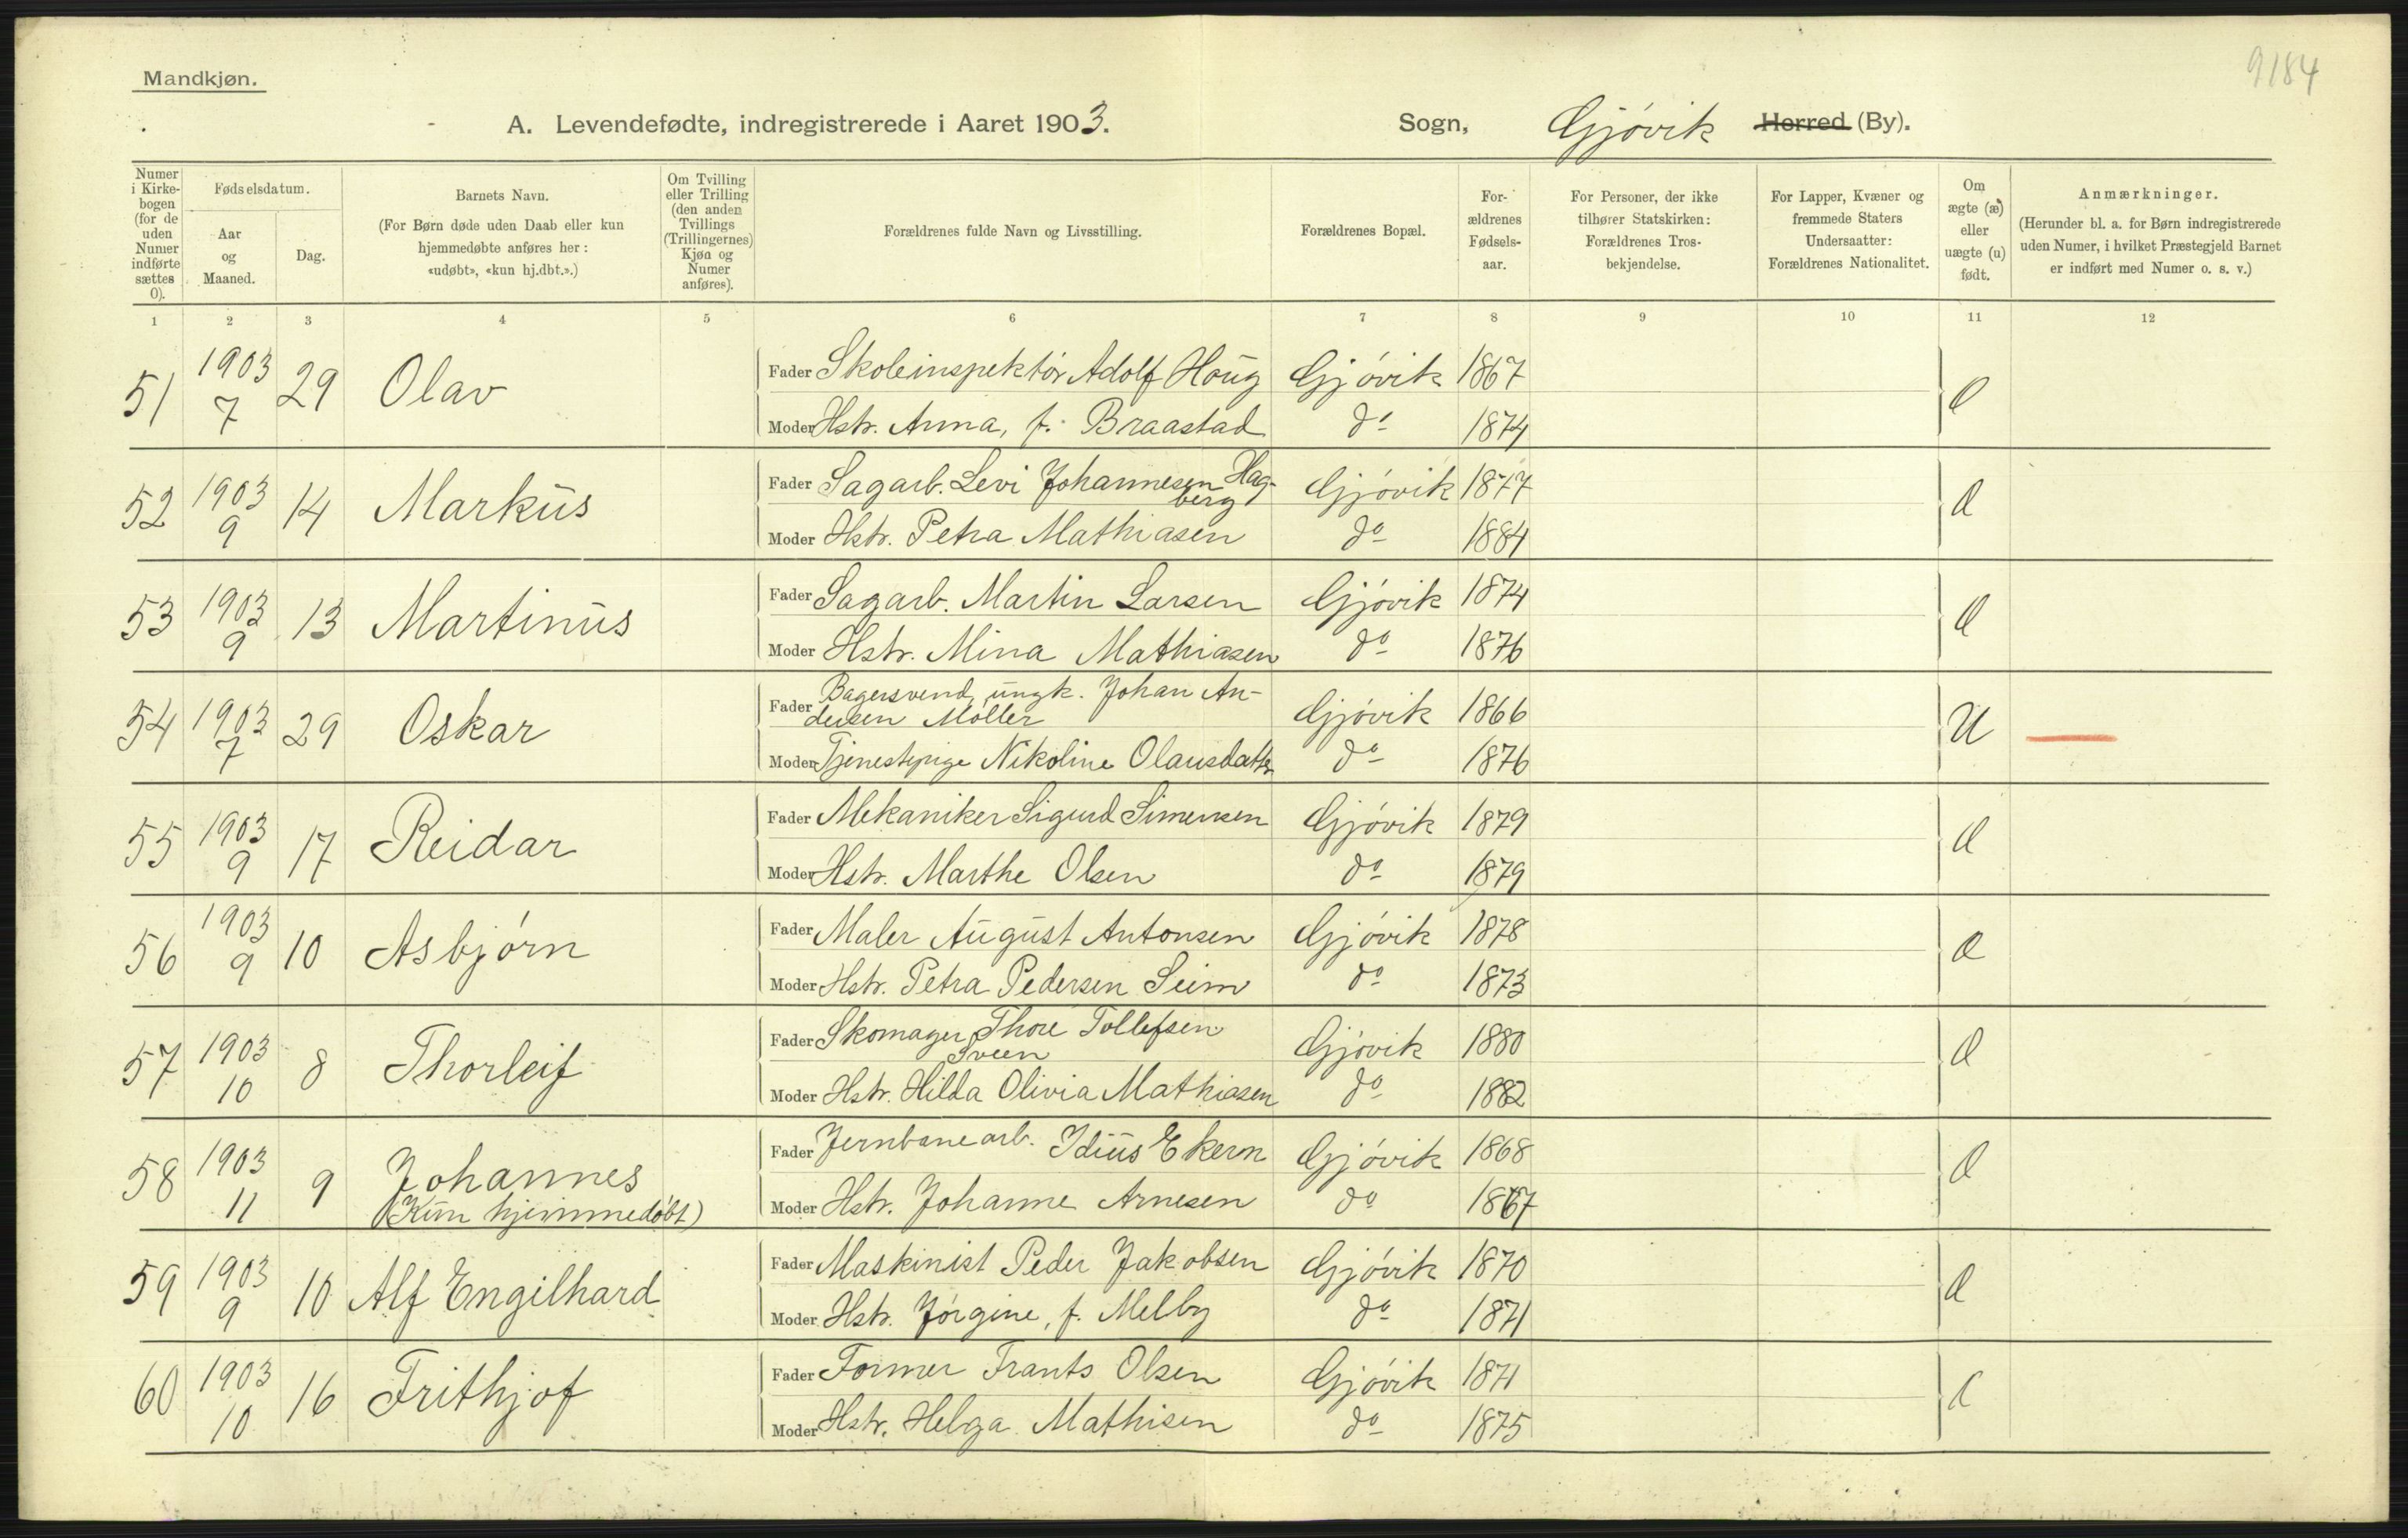 9184
Mandkjøn.
A. Levendefødte, indregistrerede i Aaret 1903. Sogn, Gjövik Herred (By).
Numer i Kirke-bogen (for de uden Numer indførte sættes 0).
Fødselsdatum.
Aar og Maaned.
Dag.
Barnets Navn.
(For Børn døde uden Daab eller kun hjemmedøbte anføres her: «udøbt», «kun hj.dbt.».)
Om Tvilling eller Trilling (den anden Tvillings (Trillingernes) Kjøn og Numer anføres).
Forældrenes fulde Navn og Livsstilling.
Forældrenes Bopæl.
For-ældrenes Fødsels-aar.
For Personer, der ikke tilhører Statskirken: Forældrenes Tros-bekjendelse.
For Lapper, Kvæner og fremmede Staters Undersaatter: Forældrenes Nationalitet.
Om ægte (æ) eller uægte (u) født.
Anmærkninger.
(Herunder bl. a. for Børn indregistrerede uden Numer, i hvilket Præstegjeld Barnet er indført med Numer o. s. v.)
1 2 3 4 5 6 7 8 9 10 11 12
51 1903 7 29 Olav
Fader Skoleinspektör Adolf Houg Gjövik 1867
Moder Hstr. Anna, f. Braastad do 1874
52 1903 9 14 Markus
Fader Sagarb. Levi Johannesen Hag-berg Gjövik 1877 Æ
Moder Hstr. Petra Mathiasen do 1884
53 1903 9 13 Martinus
Fader Sagarb. Martin Larsen Gjövik 1874 Æ
Moder Hstr. Mina Mathiasen do 1876
54 1903 7 29 Oskar
Fader Bagersvend, ungk. Johan An-
dersen Möller Gjövik 1866 U
Moder Tjenestepige Nikoline Olausdatter do 1876
55 1903 9 17 Reidar
Fader Mekaniker Sigurd Simensen Gjövik 1879 Æ
Moder Hstr. Marthe Olsen do 1879
56 1903 9 10 Asbjörn
Fader Maler August Antonsen Gjövik 1878 Æ
Moder Hstr. Petra Pedersen Seim do 1873
57 1903 10 8 Thorleif
Fader Skomager Thore Tollefsen
Sveen Gjövik 1880 Æ
Moder Hstr. Hilda Olivia Mathiasen do 1882
58 1903 11 9 Johannes
(Kun hjemmedöbt)
Fader Jernbanearb. Idius Ekern Gjövik 1868 Æ
Moder Hstr. Johanne Arnesen do 1867
59 1903 9 10 Alf Engilhard
Fader Maskinist Peder Jakobsen Gjövik 1870 Æ
Moder Hstr. Jörgine, f. Melby do 1871
60 1903 10 16 Frithjof
Fader Former Frants Olsen Gjövik 1871
Moder Hstr. Helga Mathisen do 1875